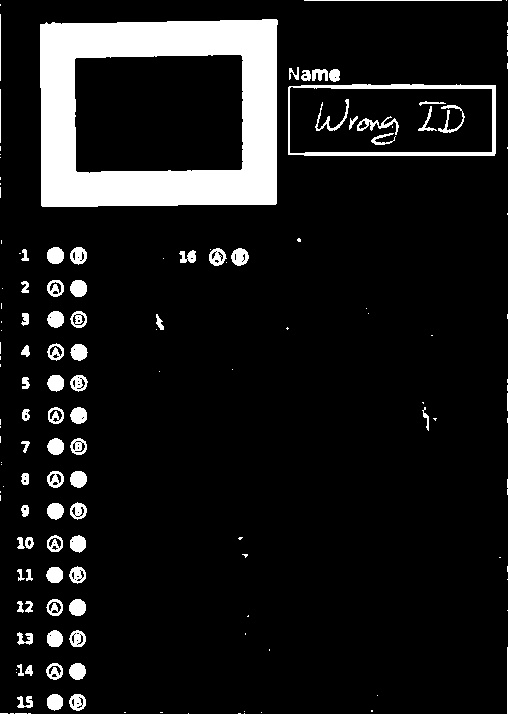 Name
Wrong ID
1 B 16 A B
2 A
3 B
4 A
5 B
6 A
7 B
8 A
9 B
10 A
11 B
12 A
13 B
14 A
15 B